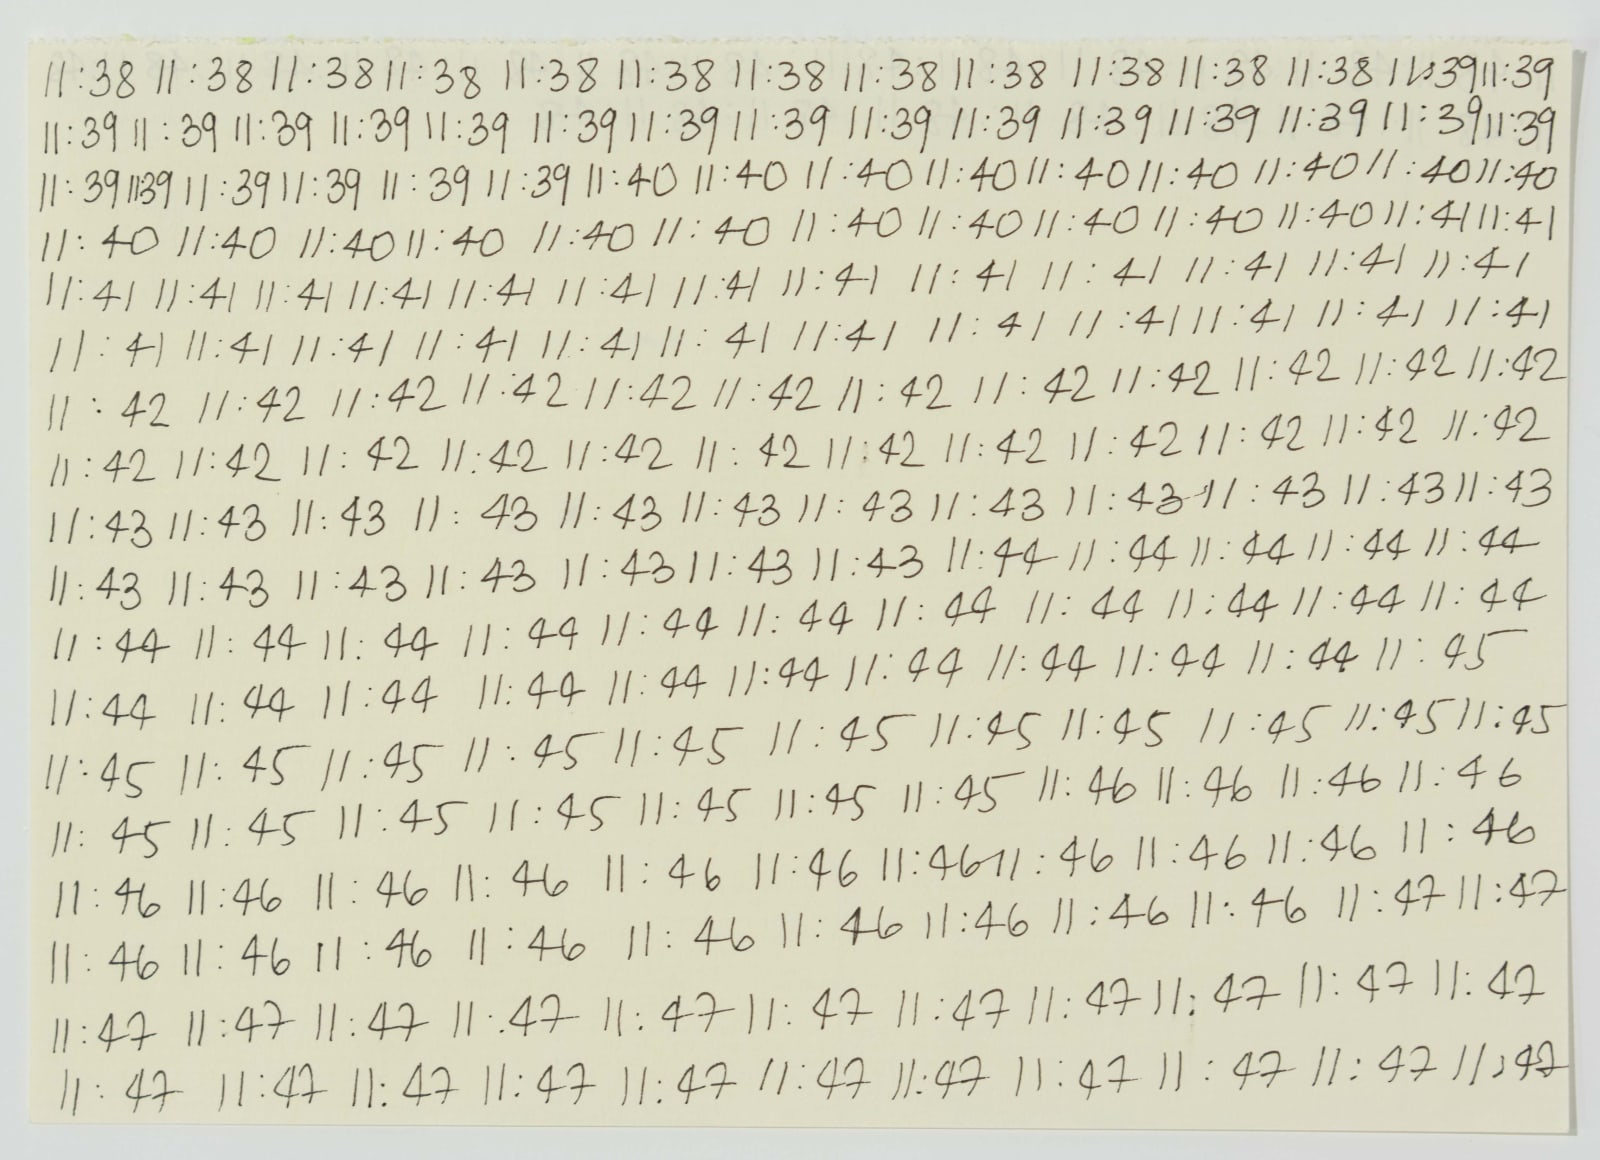 11:38 11:38 11:38 11:38 11:38 11:38 11:38 11:38 11:38 11:38 11:38 11:38 11:39 11:39
11:39 11:39 11:39 11:39 11:39 11:39 11:39 11:39 11:39 11:39 11:39 11:39 11:39 11:39 11:39
11:39 1139 11:39 11:39 11:39 11:39 11:40 11:40 11:40 11:40 11:40 11:40 11:40 11:40 11:40
11:40 11:40 11:40 11:40 11:40 11:40 11:40 11:40 11:40 11:40 11:40 11:41 11:41
11:41 11:41 11:41 11:41 11:41 11:41 11:41 11:41 11:41 11:41 11:41 11:41 11:41
11:41 11:41 11:41 11:41 11:41 11:41 11:41 11:41 11:41 11:41 11:41 11:41
11:42 11:42 11:42 11:42 11:42 11:42 11:42 11:42 11:42 11:42 11:42 11:42
11:42 11:42 11:42 11:42 11:42 11:42 11:42 11:42 11:42 11:42 11:42 11:42
11:43 11:43 11:43 11:43 11:43 11:43 11:43 11:43 11:43 11:43 11:43 11:43
11:43 11:43 11:43 11:43 11:43 11:43 11:43 11:44 11:44 11:44 11:44 11:44
11:44 11:44 11:44 11:44 11:44 11:44 11:44 11:44 11:44 11:44 11:44
11:44 11:44 11:44 11:44 11:44 11:44 11:44 11:44 11:44 11:44 11:45
11:45 11:45 11:45 11:45 11:45 11:45 11:45 11:45 11:45 11:45 11:45
11:45 11:45 11:45 11:45 11:45 11:45 11:45 11:46 11:46 11:46 11:46
11:46 11:46 11:46 11:46 11:46 11:46 11:46 11:46 11:46 11:46 11:46
11:46 11:46 11:46 11:46 11:46 11:46 11:46 11:46 11:46 11:47 11:47
11:47 11:47 11:47 11:47 11:47 11:47 11:47 11:47 11:47 11:47 11:47
11:47 11:47 11:47 11:47 11:47 11:47 11:47 11:47 11:47 11:47 11:47